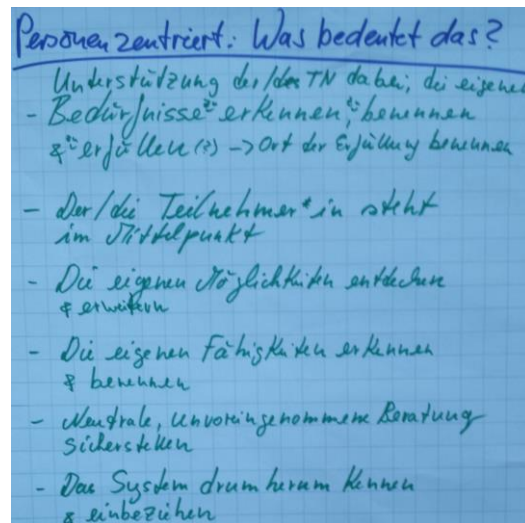 Personenzentriert: Was bedeutet das?
Unterstützung der/des TN dabei, die eigenen
- Bedürfnisse zu erkennen, zu benennen
& zu erfüllen (?) -> Ort der Erfüllung benennen
- Der/die Teilnehmer*in steht
im Mittelpunkt
- Die eigenen Möglichkeiten entdecken
& erweitern
- Die eigenen Fähigkeiten erkennen
& benennen
- Neutrale, unvoreingenommene Beratung
sicherstellen
- Das System drumherum kennen
& einbeziehen